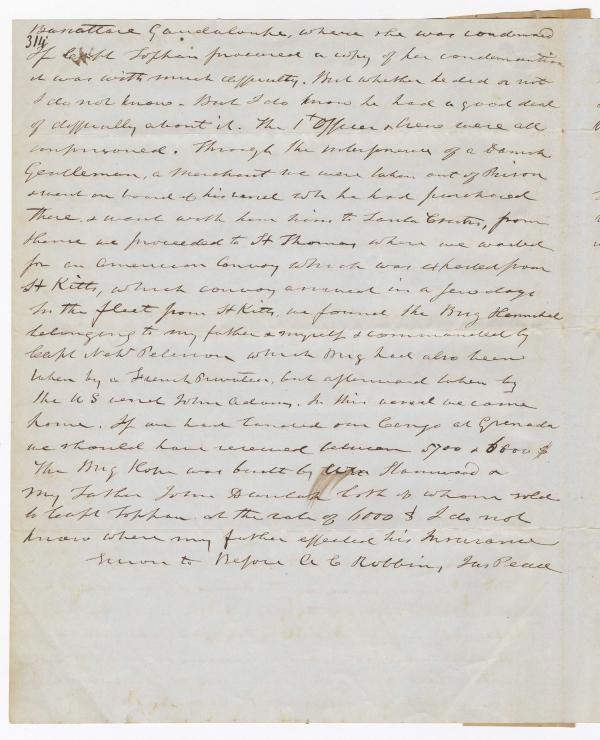 Bassattare Gaudaloupe, where she was condemned
314
If Capt Tophan procured a copy of her condemnation
it was with much difficulty. But whether he did or not
I do not know - But I do know he had a good deal
of difficually about it. The 1st Officer & Crew were all
imprisoned. Through the interference of a Danish
Gentleman, a Merchant we were taken out of Prison
& went on board of his vessel wh he had purchased
there, & went with him to Santa Cruz, from
thence we proceeded to St Thomas where we waited
for an American Convoy which was expected from
St Kitts, which convoy arrived in a few days
In the fleet from St Kitts, we found the Brig Hannibal
belonging to my father & myself & commanded by
Capt Nathl Peterson which Brig had also been
taken by a French Privateer, but afterward taken by
the US vessel John Adams. In this vessel we came
home. If we had landed our Cargo at Grenada
we should have received between 5700 & 6800 $
The Brig Hope was built by Hanward &
my Father John Dunlap both of whom sold
to Capt Toppan at the rate of 4000 $ I do not
know where my father effected his Insurance
Sworn to Before A C Robbins, Jus Peace